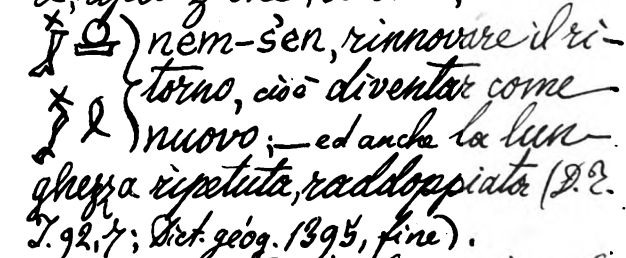 nem-s'en, rinnovare il ri-
torno, cioè diventar come
nuovo; — ed anche la lun-
ghezza ripetuta, raddoppiata (D.T.
I. 92, 7; Dict. géog. 1395, fine).